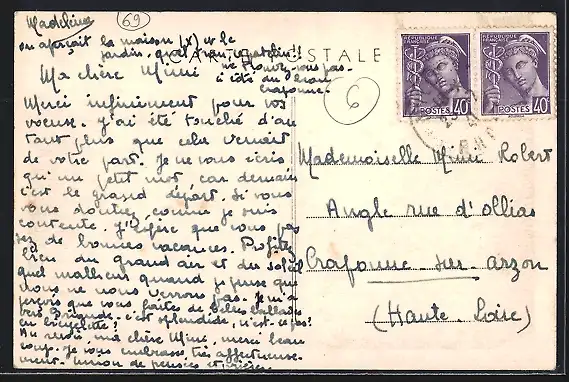 Madeleine
69
on aperçoit la maison (x) et le
jardin, quel beau jardin!!
CARTE POSTALE
ne trouvez vous pas.
Ma chère Mimi
à côté du écran
craponne.
6
Merci infiniment pour vos
voeux. J'ai été touchée d'au
tant plus que cela venait
de votre part. Je ne vous écris
qu'un petit mot car demain
c'est le grand départ. Si vous
vous doutiez comme je suis
contente. J'espère que vous pas
sez de bonnes vacances. Profitez
bien du grand air et du soleil
quel malheur quand je pense que
nous ne nous verrons pas. Je m'a
perçois que vous faites de belles ballades
vers Brioude. c'est splendide, n'est-ce pas?
en bicyclette!
Au revoir, ma chère Mimi, merci beau
coup. Je vous embrasse très affectueuse
ment. union de pensées et prières
RÉPUBLIQUE FRANÇAISE
POSTES 40c
RÉPUBLIQUE FRANÇAISE
POSTES 40c
Mademoiselle Mimi Robert
Angle rue d'Ollias
Craponne-sur-Arzon
(Haute-Loire)